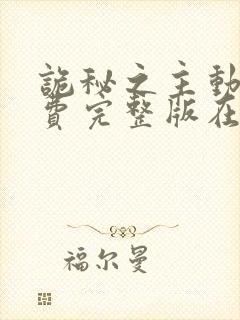 詭秘之主動
費完整版在
福尔曼